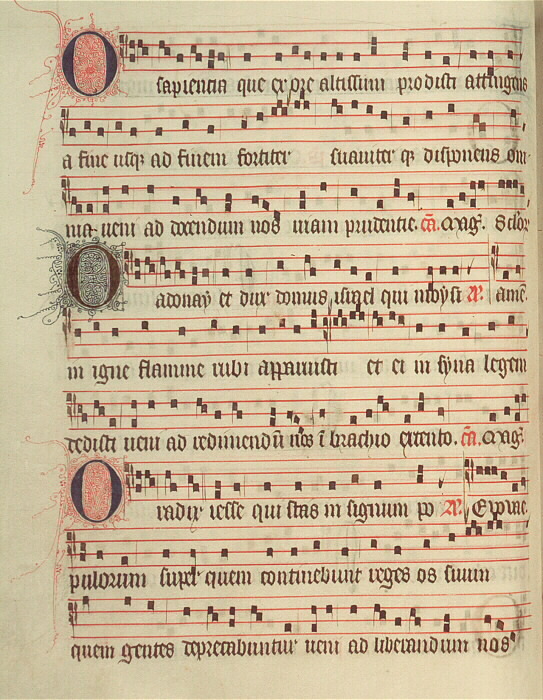 O sapientia que ex ore altissimi prodisti attingens
a fine usq ad finem fortiter suauiter q disponens om
nia ueni ad docendum nos uiam prudentie. ca. Mag. Sclor
O adonay et dux domus israel qui moysi R amē
in igne flamme rubi apparuisti et ei in syna legem
dedisti ueni ad redimendū nos ī brachio extento. ca. Mag.
O radix iesse qui stas in signum po R Euouae
pulorum super quem continebunt reges os suum
quem gentes deprecabuntur ueni ad liberandum nos